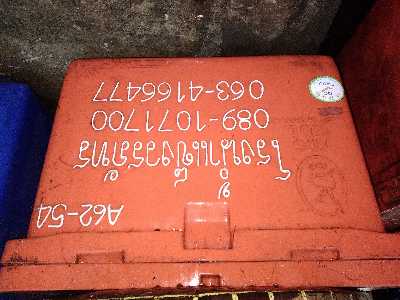 A62-54
โรงน้ำแข็งวรภัทร
089-1071700
063-4166477